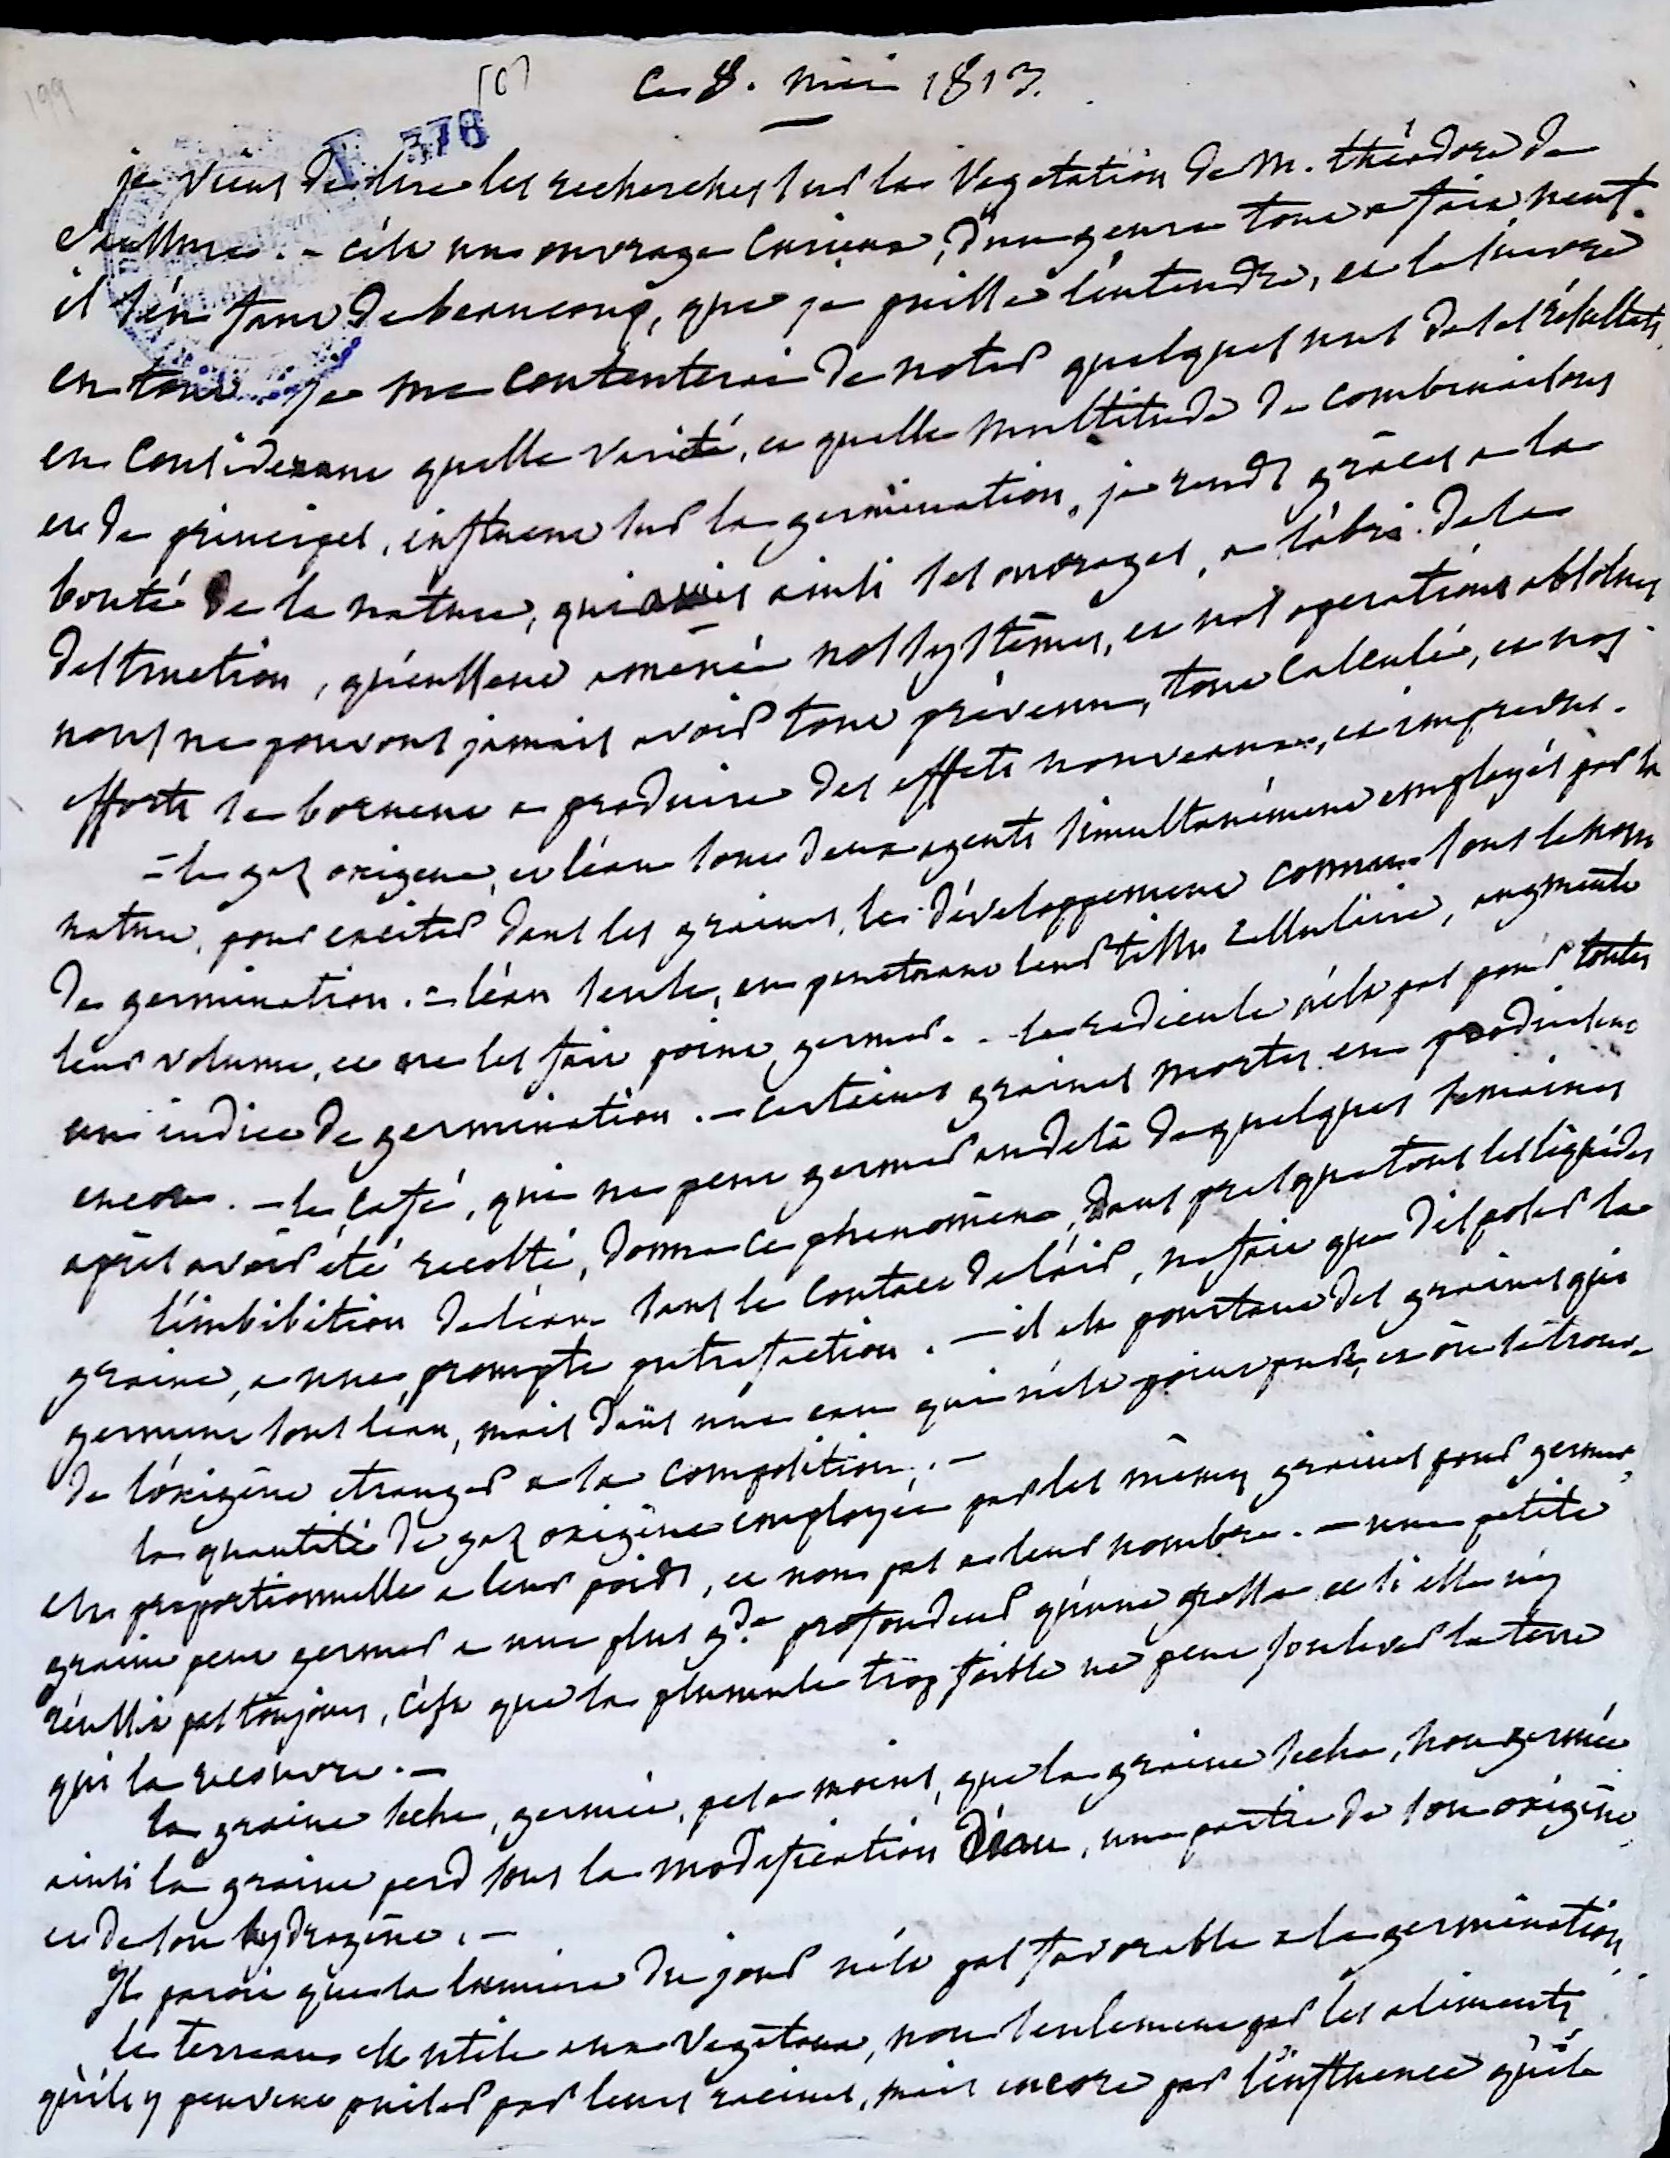 199
[6]
ce 8. mai 1813.
378
je viens de lire les recherches sur la Vegetation de M. théodore de
Saussure. - c'est un ouvrage curieux, d'un genre tout a fait neuf.
il s'en faut de beaucoup, que je puisse l'entendre, et le suivre
en tout. je me contenterai de noter quelques uns de ses résultats.
en considerant quelle varieté, et quelle multitude de combinaisons
et de principes, influent sur la germination, je rends grâces a la
bonté de la nature, qui a mis ainsi ses ouvrages, a l'abri de la
destruction, qu'eussent amenée nos systêmes, et nos operations absolues
nous ne pouvons jamais avoir tout prévenu, tout calculé, et nos
efforts se bornent a produire des effets nouveaux, et imprevus.
= le gaz oxigene, et l'eau sont deux agents simultanément employés par la
nature, pour exciter dans les graines, le développement connu sous le nom
de germination. = l'eau seule, en penetrant leur tissu cellulaire, augmente
leur volume, et ne les fait point germer. - la radicule n'est pas pour toutes
un indice de germination. - certaines graines mortes en produisent
encore. - le café, qui ne peut germer au delà de quelques semaines
après avoir été recolté, donne ce phenomène, dans presque tous les liquides
l'imbibition de l'eau sans le contact de l'air, ne fait que disposer la
graine, a une prompte putrefaction. - il est pourtant des graines qui
germent sous l'eau, mais dans une eau qui n'est point pure, et où se trouve
de l'oxigène etranger a la composition. -
la quantité de gaz oxigène employée par les mêmes graines pour germer,
est proportionnelle a leur poids, et non pas a leur nombre. - une petite
graine peut germer a une plus gde profondeur qu'une grosse et si elle n'y
réussit pas toujours, c'est que la plumule trop faible ne peut soulever la terre
qui la recouvre. -
la graine seche, germée, pese moins, que la graine seche, non germée
ainsi la graine perd sous la modification d'eau, une partie de son oxigène,
et de son hydrogène. -
Il paroit que la lumiere du jour n'est pas favorable a la germination,
le terreau est utile aux vegetaux, non seulement par les aliments
qu'ils y peuvent puiser par leurs racines, mais encore par l'influence qu'il a